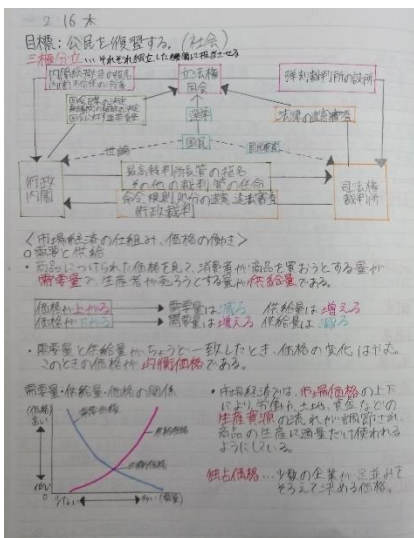 2.16 木
目標:公民を復習する。(社会)
三権分立…それぞれ独立した機関に担当させる
内閣総理大臣の指名
内閣不信任の決議
立法権
国会
弾劾裁判所の設置
国会召集の決定
衆議院の解散の決定
国会に対する連帯責任
選挙
法律の違憲審査
世論
国民
国民審査
行政
内閣
最高裁判所長官の指名
その他の裁判官の任命
司法権
裁判所
命令、規則、処分の違憲、違法審査
行政裁判
<市場経済の仕組み、価格の働き>
○需要と供給
・商品につけられた価格を見て、消費者が商品を買おうとする量が
需要量で、生産者が売ろうとする量が供給量である。
価格が上がる → 需要量は減る 供給量は増える
価格が下がる → 需要量は増える 供給量は減る
・需要量と供給量がちょうど一致したとき、価格の変化は止む。
このときの価格が均衡価格である。
需要量・供給量・価格の関係
(価格)
高い
需要価格
供給価格
均衡価格
低い
0
少ない
多い(数量)
・市場経済では、市場価格の上下
により、労働力、土地、資金などの
生産資源の流れが調節され、
商品の生産に適量だけ使われる
ようにしている。
独占価格…少数の企業が足並みを
そろえて決める価格。